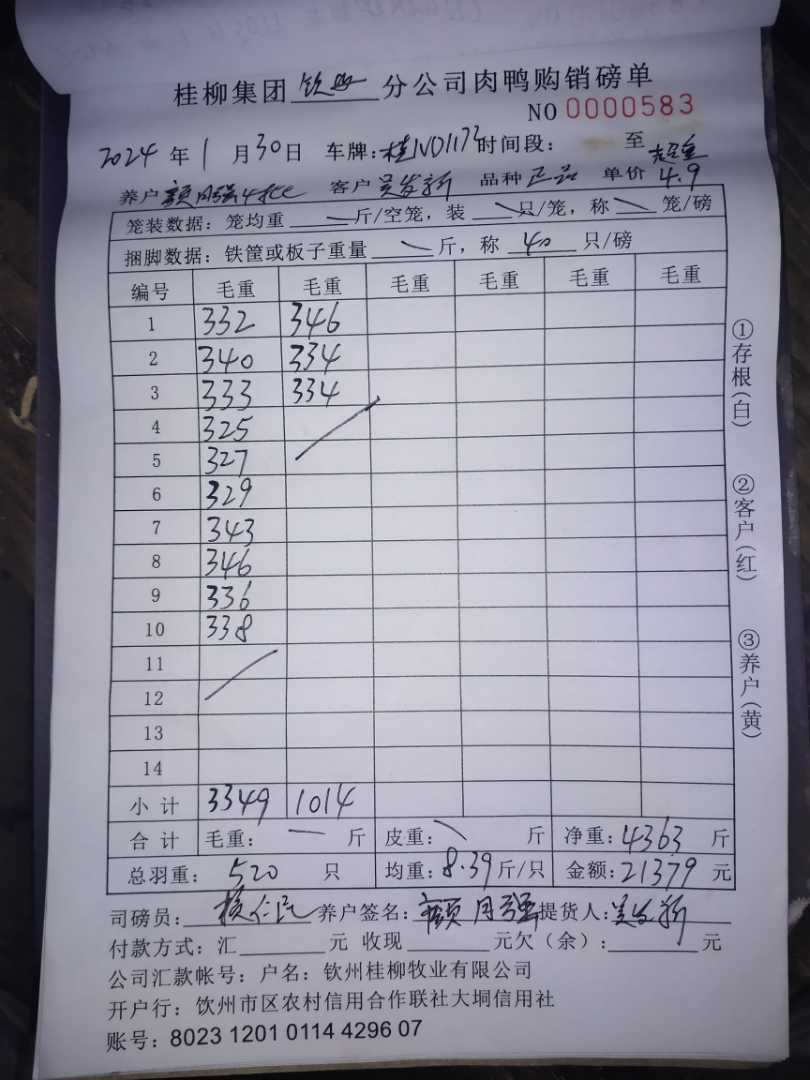 桂柳集团 钦州 分公司肉鸭购销磅单
NO 0000583
2024 年 1 月 30 日 车牌：桂ND1173 时间段： 至
养户 颜月强4批 客户 吴发新 品种 正品 单价 4.9
笼装数据：笼均重 斤/空笼，装 只/笼，称 笼/磅
捆脚数据：铁筐或板子重量 斤，称 40 只/磅
编号 毛重 毛重 毛重 毛重 毛重 毛重
1 332 346
2 340 334
3 333 334
4 325
5 327
6 329
7 343
8 346
9 336
10 338
11
12
13
14
小计 3349 1014
合计 毛重： 斤 皮重： 斤 净重：4363 斤
总羽重： 520 只 均重：8.39 斤/只 金额：21379 元
司磅员： 养户签名：颜月强 提货人：吴发新
付款方式：汇 元 收现 元欠（余）： 元
公司汇款帐号：户名：钦州桂柳牧业有限公司
开户行：钦州市区农村信用合作联社大垌信用社
账号：8023 1201 0114 4296 07
①存根（白）
②客户（红）
③养户（黄）